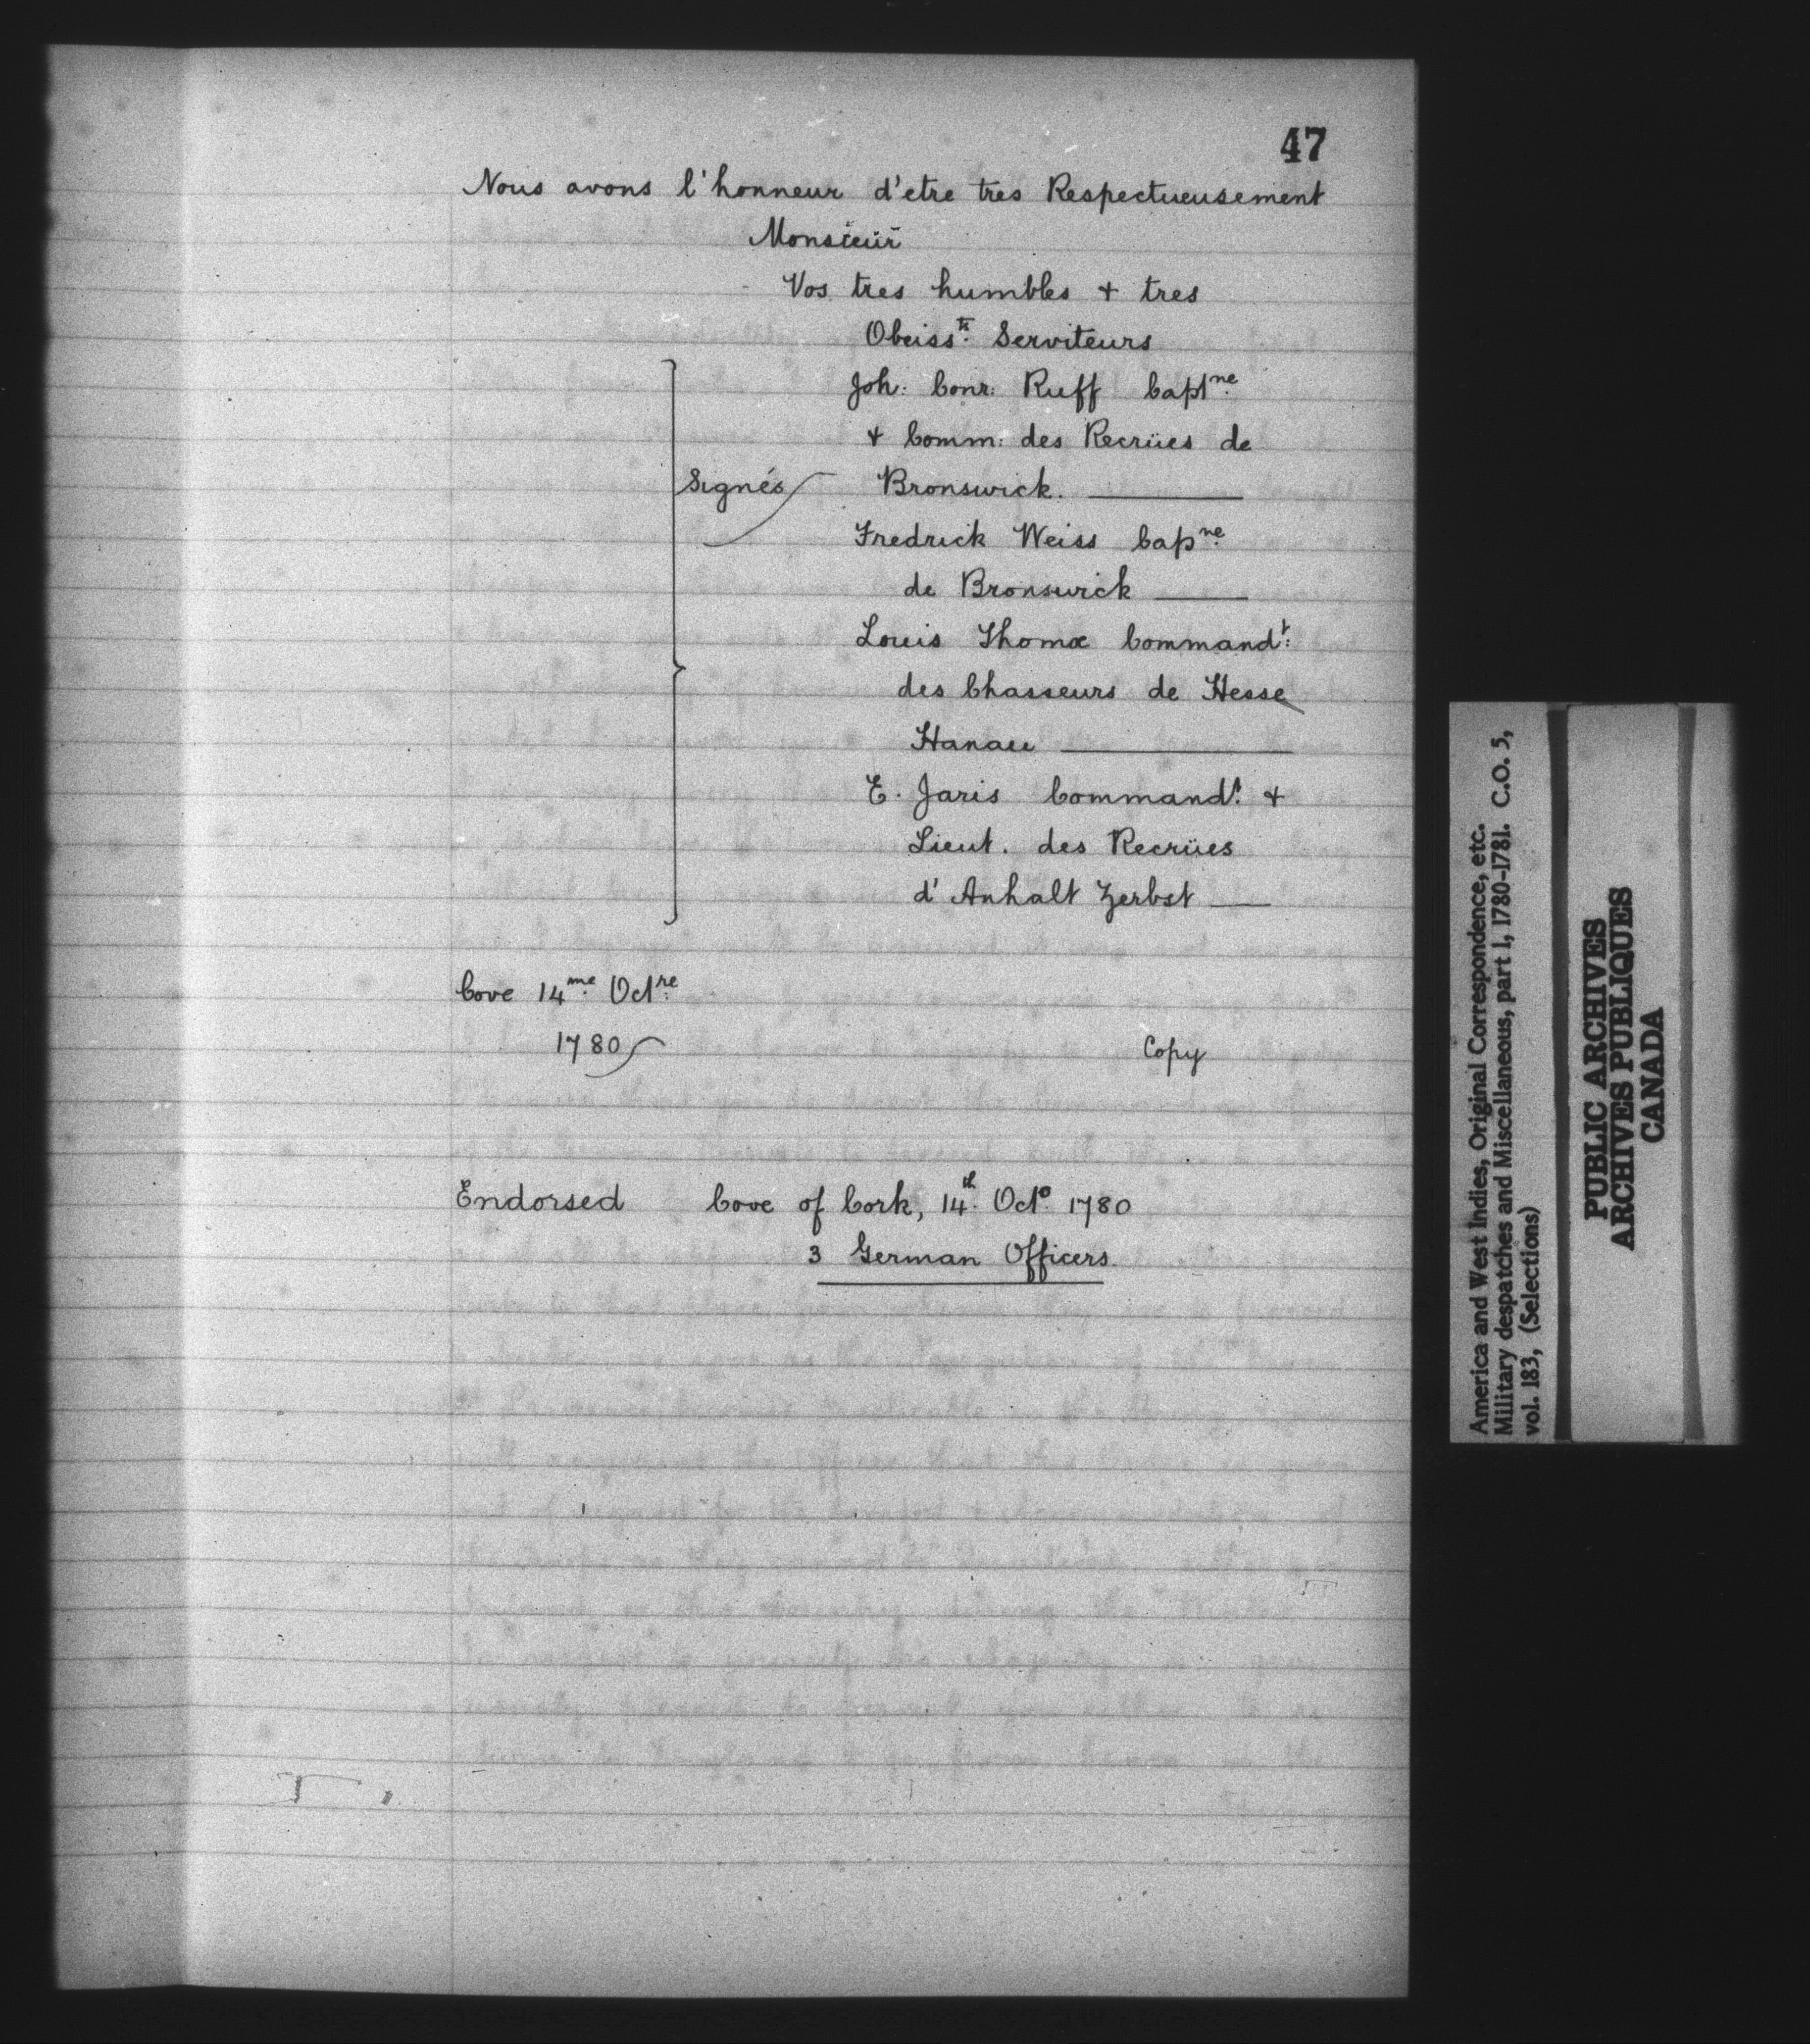 47
Nous avons l'honneur d'etre tres Respectueusement
Monsieur
Vos tres humbles + tres
Obeiss.ts Serviteurs
Joh: Conr: Ruff Capt.ne
+ Comm: des Recrües de
Signés Bronswick.
Fredrick Weiss Cap.ne
de Bronswick
Louis Thomæ Command:t
des Chasseurs de Hesse
Hanau
E. Jaris Command.t +
Lieut. des Recrües
d'Anhalt Zerbst
Cove 14.me Oct.re
1780
Copy
Endorsed Cove of Cork, 14.th Oct.o 1780
3 German Officers.
America and West Indies, Original Correspondence, etc.
Military despatches and Miscellaneous, part 1, 1780-1781. C.O. 5,
vol. 183, (Selections)
PUBLIC ARCHIVES
ARCHIVES PUBLIQUES
CANADA